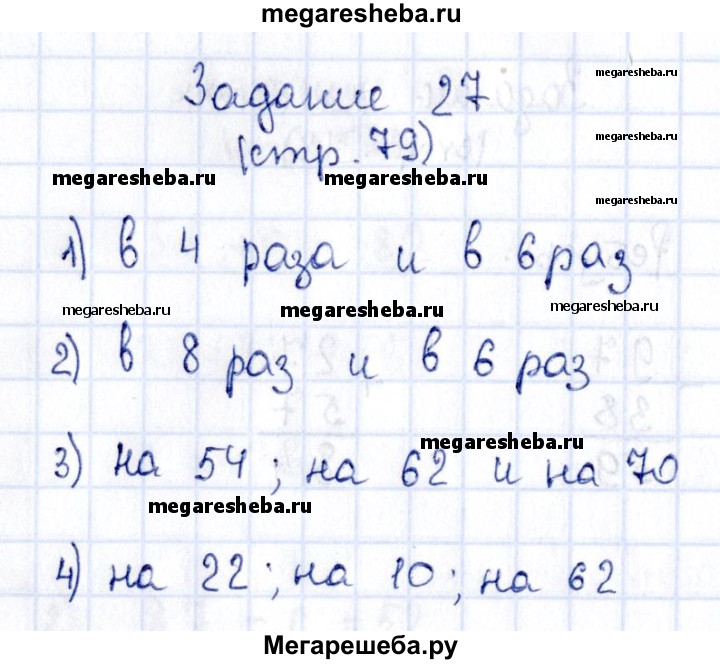 megaresheba.ru
Задание 27
megaresheba.ru
(стр. 79)
megaresheba.ru
megaresheba.ru megaresheba.ru
megaresheba.ru
1) в 4 раза и в 6 раз
megaresheba.ru megaresheba.ru megaresheba.ru
2) в 8 раз и в 6 раз
megaresheba.ru
3) на 54; на 62 и на 70
megaresheba.ru
4) на 22; на 10; на 62
Мегарешеба.ру